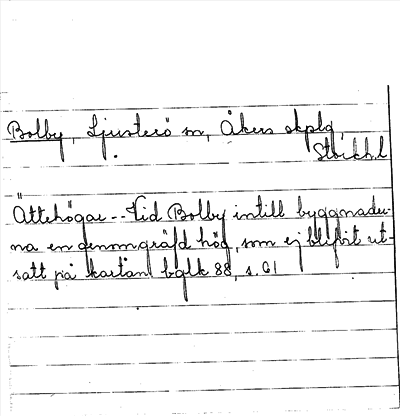 Bolby, Ljusterö sn, Åkers skplg,
Stockh.l
Ättehögar -- Vid Bolby intill byggnader-
na en genomgräfd hög, som ej blifvit ut-
satt på kartan bglk 88, s. 61